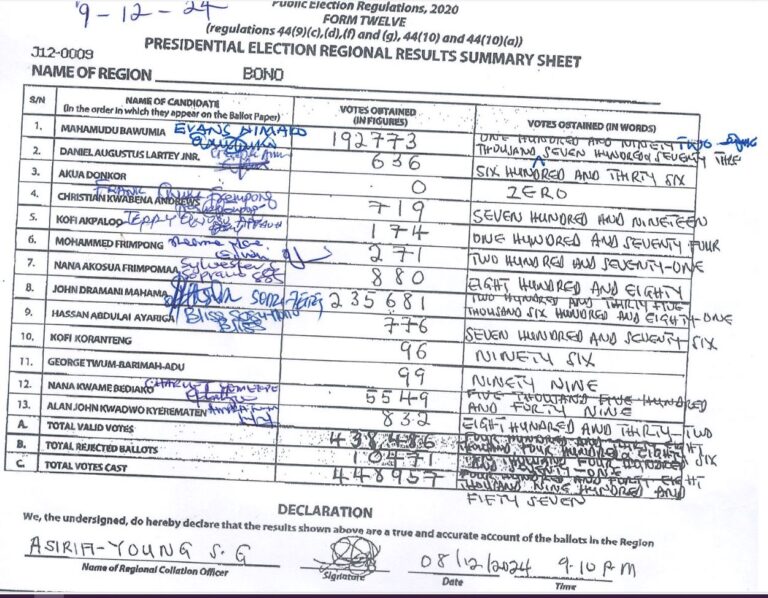 9-12-24
Public Election Regulations, 2020
FORM TWELVE
(regulations 44(9)(c),(d),(f) and (g), 44(10) and 44(10)(a))
PRESIDENTIAL ELECTION REGIONAL RESULTS SUMMARY SHEET
J12-0009
NAME OF REGION BONO
S/N NAME OF CANDIDATE (In the order in which they appear on the Ballot Paper) VOTES OBTAINED (IN FIGURES) VOTES OBTAINED (IN WORDS)
1. MAHAMUDU BAWUMIA EVANS NIMAKO 192773 ONE HUNDRED AND NINETY TWO THOUSAND SEVEN HUNDRED & SEVENTY THREE
2. DANIEL AUGUSTUS LARTEY JNR. 636 SIX HUNDRED AND THIRTY SIX
3. AKUA DONKOR 0 ZERO
4. CHRISTIAN KWABENA ANDREWS FRANK FRIMPONG 719 SEVEN HUNDRED AND NINETEEN
5. KOFI AKPALOO 174 ONE HUNDRED AND SEVENTY FOUR
6. MOHAMMED FRIMPONG 271 TWO HUNDRED AND SEVENTY-ONE
7. NANA AKOSUA FRIMPOMAA Sylvester 880 EIGHT HUNDRED AND EIGHTY
8. JOHN DRAMANI MAHAMA 235681 TWO HUNDRED AND THIRTY FIVE THOUSAND SIX HUNDRED AND EIGHTY-ONE
9. HASSAN ABDULAI AYARIGA Bliss 776 SEVEN HUNDRED AND SEVENTY SIX
10. KOFI KORANTENG 96 NINETY SIX
11. GEORGE TWUM-BARIMAH-ADU 99 NINETY NINE
12. NANA KWAME BEDIAKO CHARLES 5549 FIVE THOUSAND FIVE HUNDRED AND FORTY NINE
13. ALAN JOHN KWADWO KYEREMATEN 832 EIGHT HUNDRED AND THIRTY TWO
A. TOTAL VALID VOTES 438,486 FOUR HUNDRED AND THIRTY EIGHT THOUSAND FOUR HUNDRED & EIGHTY SIX
B. TOTAL REJECTED BALLOTS 10471 TEN THOUSAND FOUR HUNDRED AND SEVENTY-ONE
C. TOTAL VOTES CAST 448957 FOUR HUNDRED AND FORTY EIGHT THOUSAND NINE HUNDRED AND FIFTY SEVEN
DECLARATION
We, the undersigned, do hereby declare that the results shown above are a true and accurate account of the ballots in the Region
ASIRIFI-YOUNG S.G 08/12/2024 9.10PM
Name of Regional Collation Officer Signature Date Time